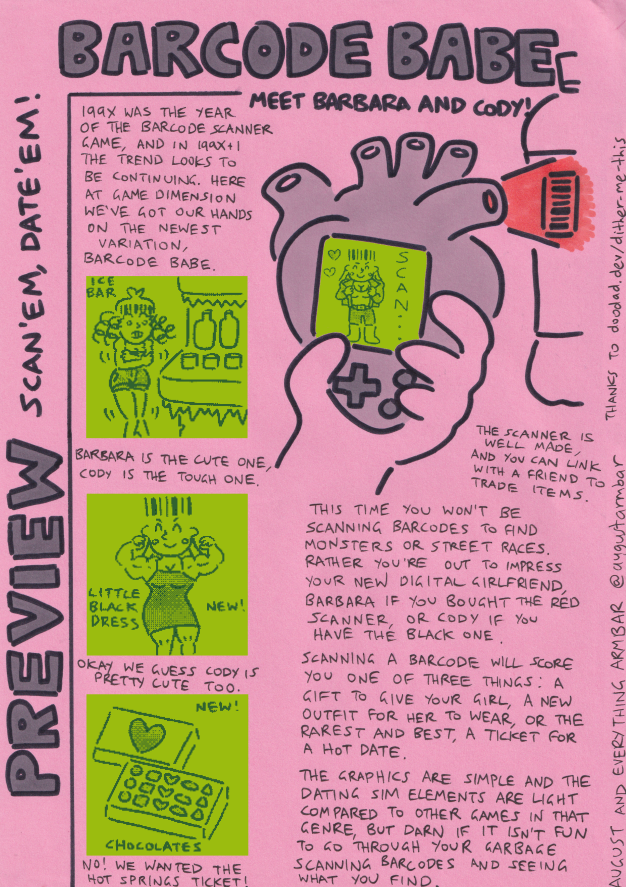 BARCODE BABE
MEET BARBARA AND CODY!
SCAN'EM, DATE'EM!
PREVIEW
199X WAS THE YEAR
OF THE BARCODE SCANNER
GAME, AND IN 199X+1
THE TREND LOOKS TO
BE CONTINUING. HERE
AT GAME DIMENSION
WE'VE GOT OUR HANDS
ON THE NEWEST
VARIATION,
BARCODE BABE.
SCAN...
ICE
BAR
BARBARA IS THE CUTE ONE,
CODY IS THE TOUGH ONE.
LITTLE
BLACK
DRESS
NEW!
OKAY WE GUESS CODY IS
PRETTY CUTE TOO.
NEW!
CHOCOLATES
NO! WE WANTED THE
HOT SPRINGS TICKET!
THE SCANNER IS
WELL MADE,
AND YOU CAN LINK
WITH A FRIEND TO
TRADE ITEMS.
THIS TIME YOU WON'T BE
SCANNING BARCODES TO FIND
MONSTERS OR STREET RACES.
RATHER YOU'RE OUT TO IMPRESS
YOUR NEW DIGITAL GIRLFRIEND,
BARBARA IF YOU BOUGHT THE RED
SCANNER, OR CODY IF YOU
HAVE THE BLACK ONE.
SCANNING A BARCODE WILL SCORE
YOU ONE OF THREE THINGS: A
GIFT TO GIVE YOUR GIRL, A NEW
OUTFIT FOR HER TO WEAR, OR THE
RAREST AND BEST, A TICKET FOR
A HOT DATE.
THE GRAPHICS ARE SIMPLE AND THE
DATING SIM ELEMENTS ARE LIGHT
COMPARED TO OTHER GAMES IN THAT
GENRE, BUT DARN IF IT ISN'T FUN
TO GO THROUGH YOUR GARBAGE
SCANNING BARCODES AND SEEING
WHAT YOU FIND.
AUGUST AND EVERYTHING ARMBAR @augustarmbar THANKS TO doodad.dev/dither-me-this